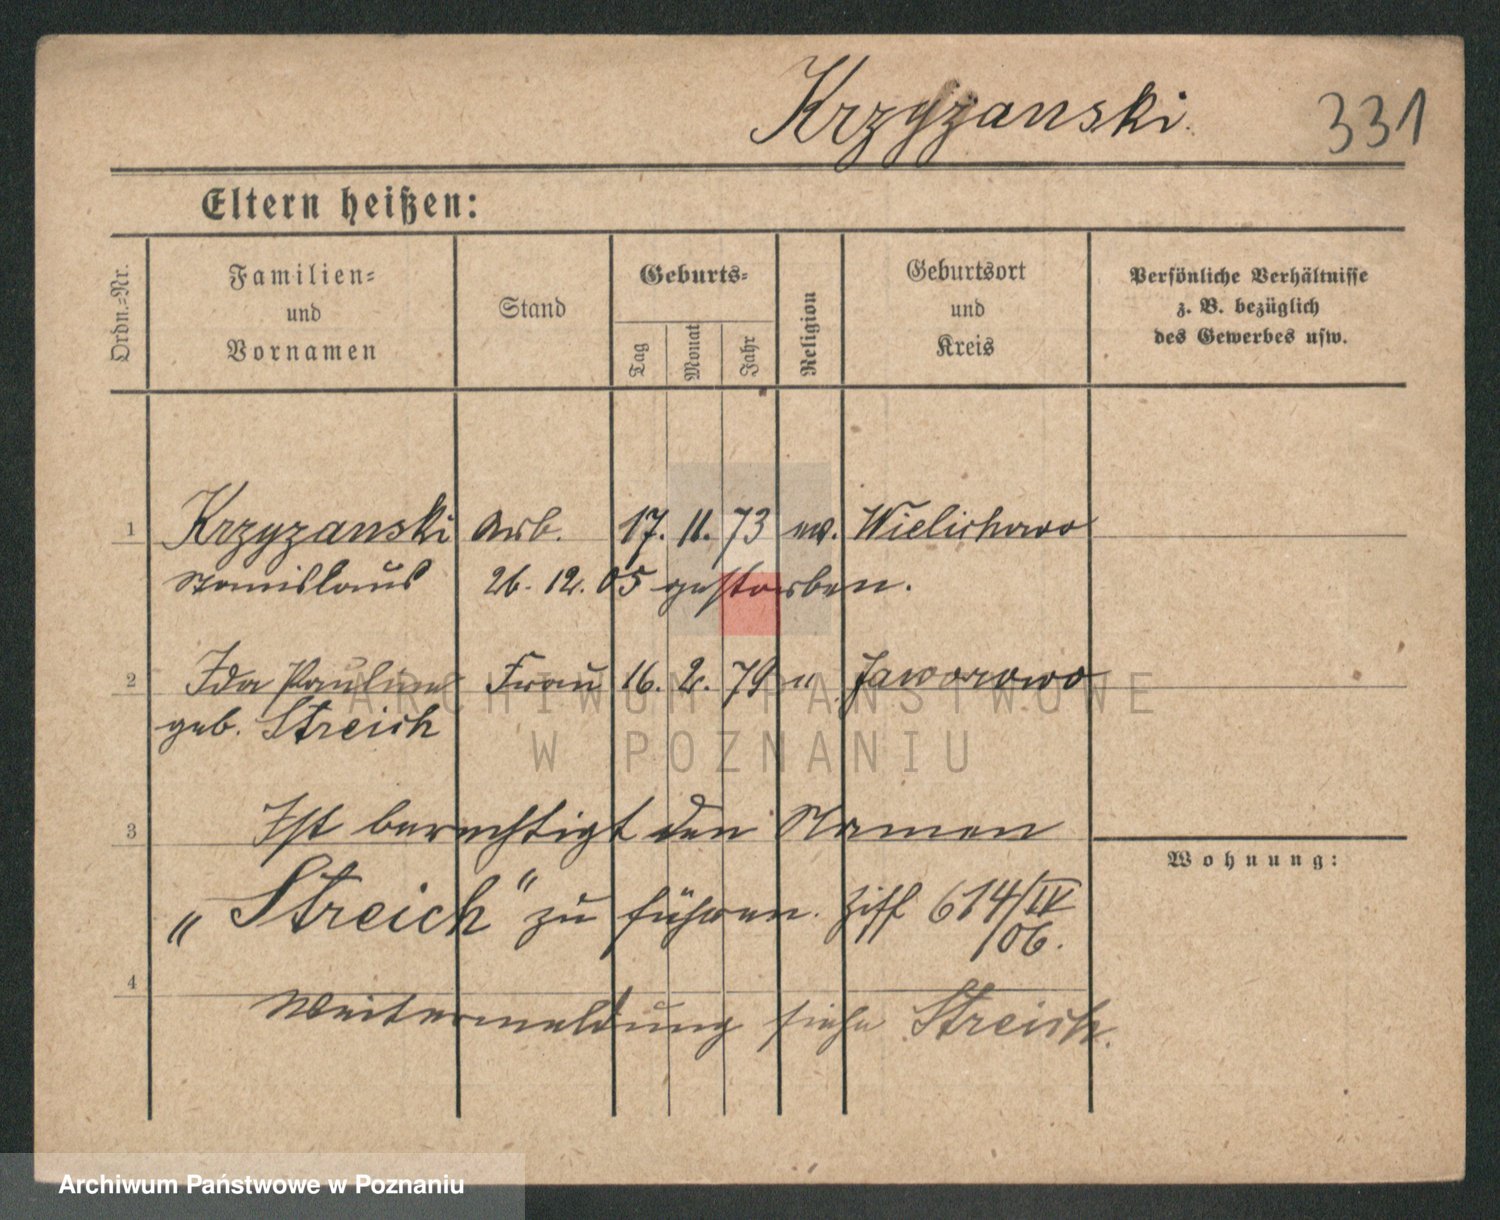 Krzyzanski.
331
Eltern heißen:
Ordn.-Nr.
Familien-
und
Vornamen
Stand
Geburts-
Tag
Monat
Jahr
Religion
Geburtsort
und
Kreis
Persönliche Verhältnisse
z. B. bezüglich
des Gewerbes usw.
1 Krzyzanski Arb. 17. 11. 73 ev. Wielichowo
Stanislaus 26. 12. 05 gestorben.
2 Ida Pauline Frau 16. 2. 79 " Jaworowo
geb. Streich
3 Ist berechtigt den Namen
Wohnung:
„Streich“ zu führen. Ziff 614/IV
/06.
4
Weitermeldung siehe Streich.
ARCHIWUM PAŃSTWOWE
W POZNANIU
Archiwum Państwowe w Poznaniu